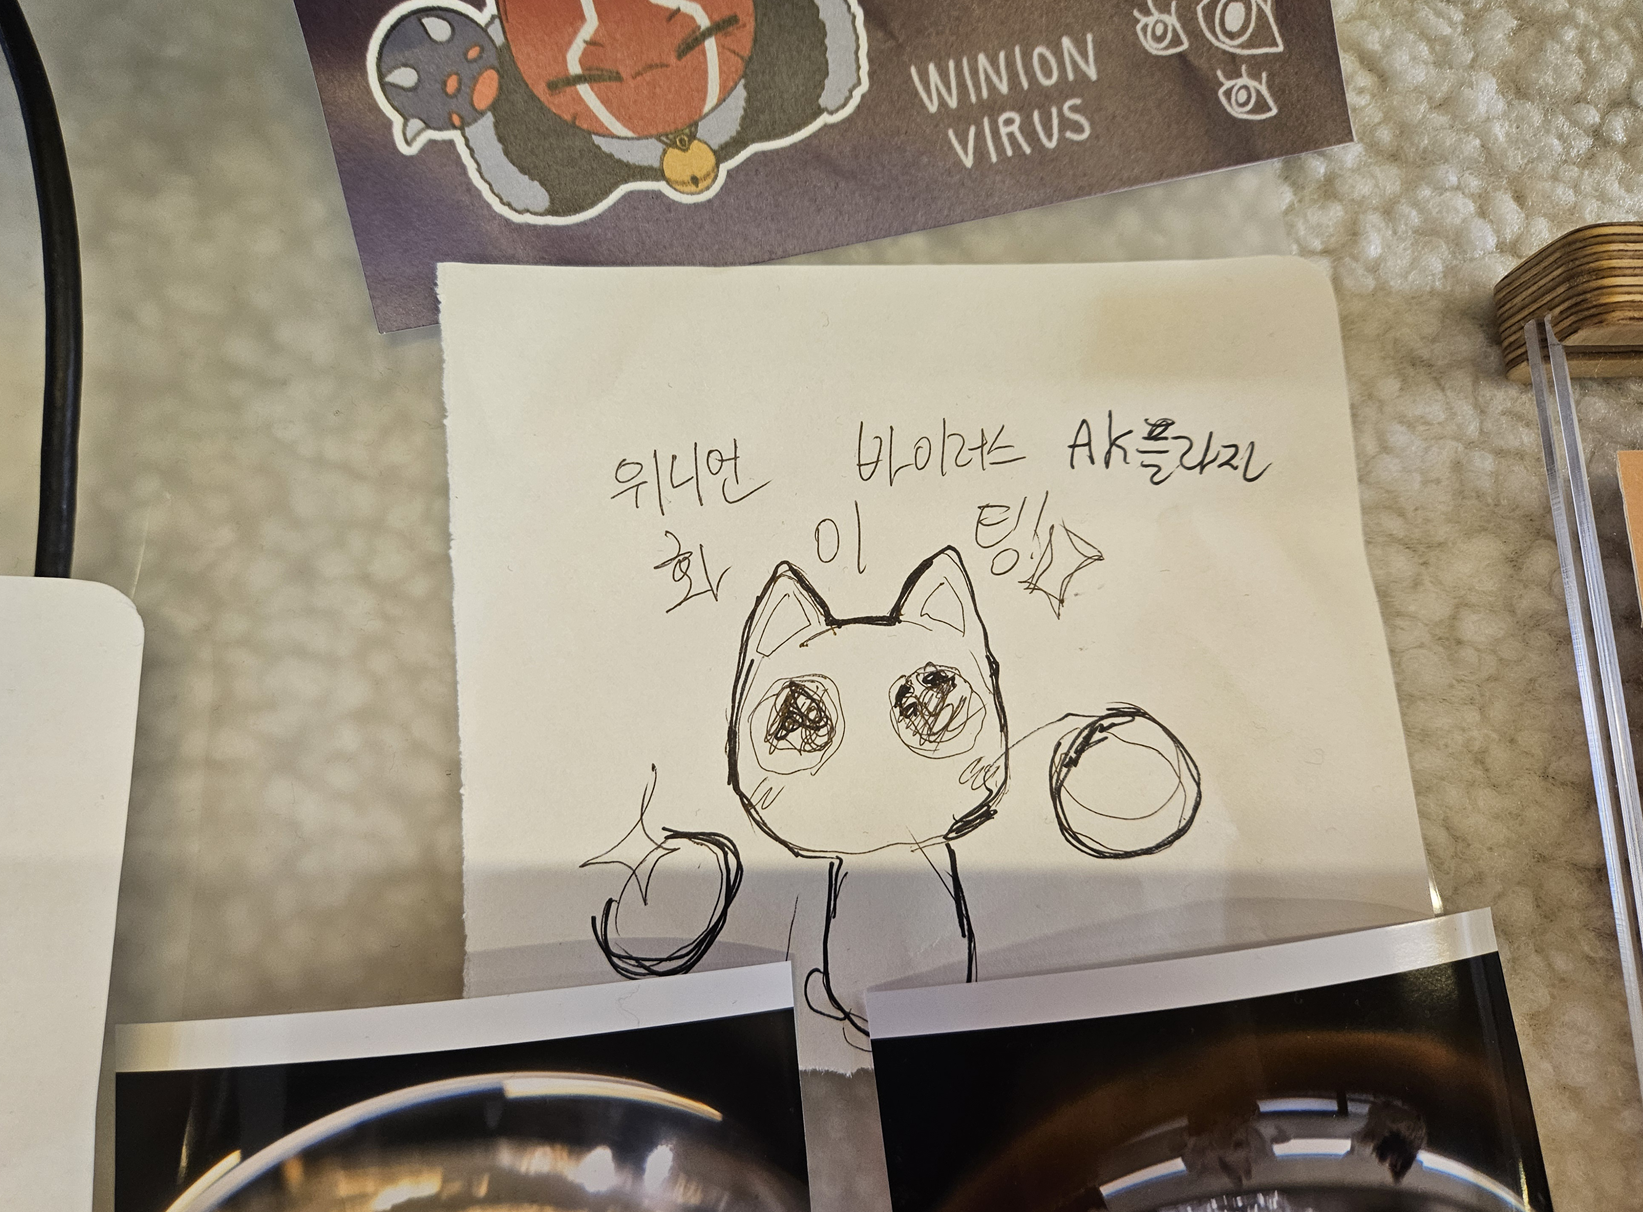 WINION
VIRUS
위니언 바이러스 AK플라자
화 이 팅!!